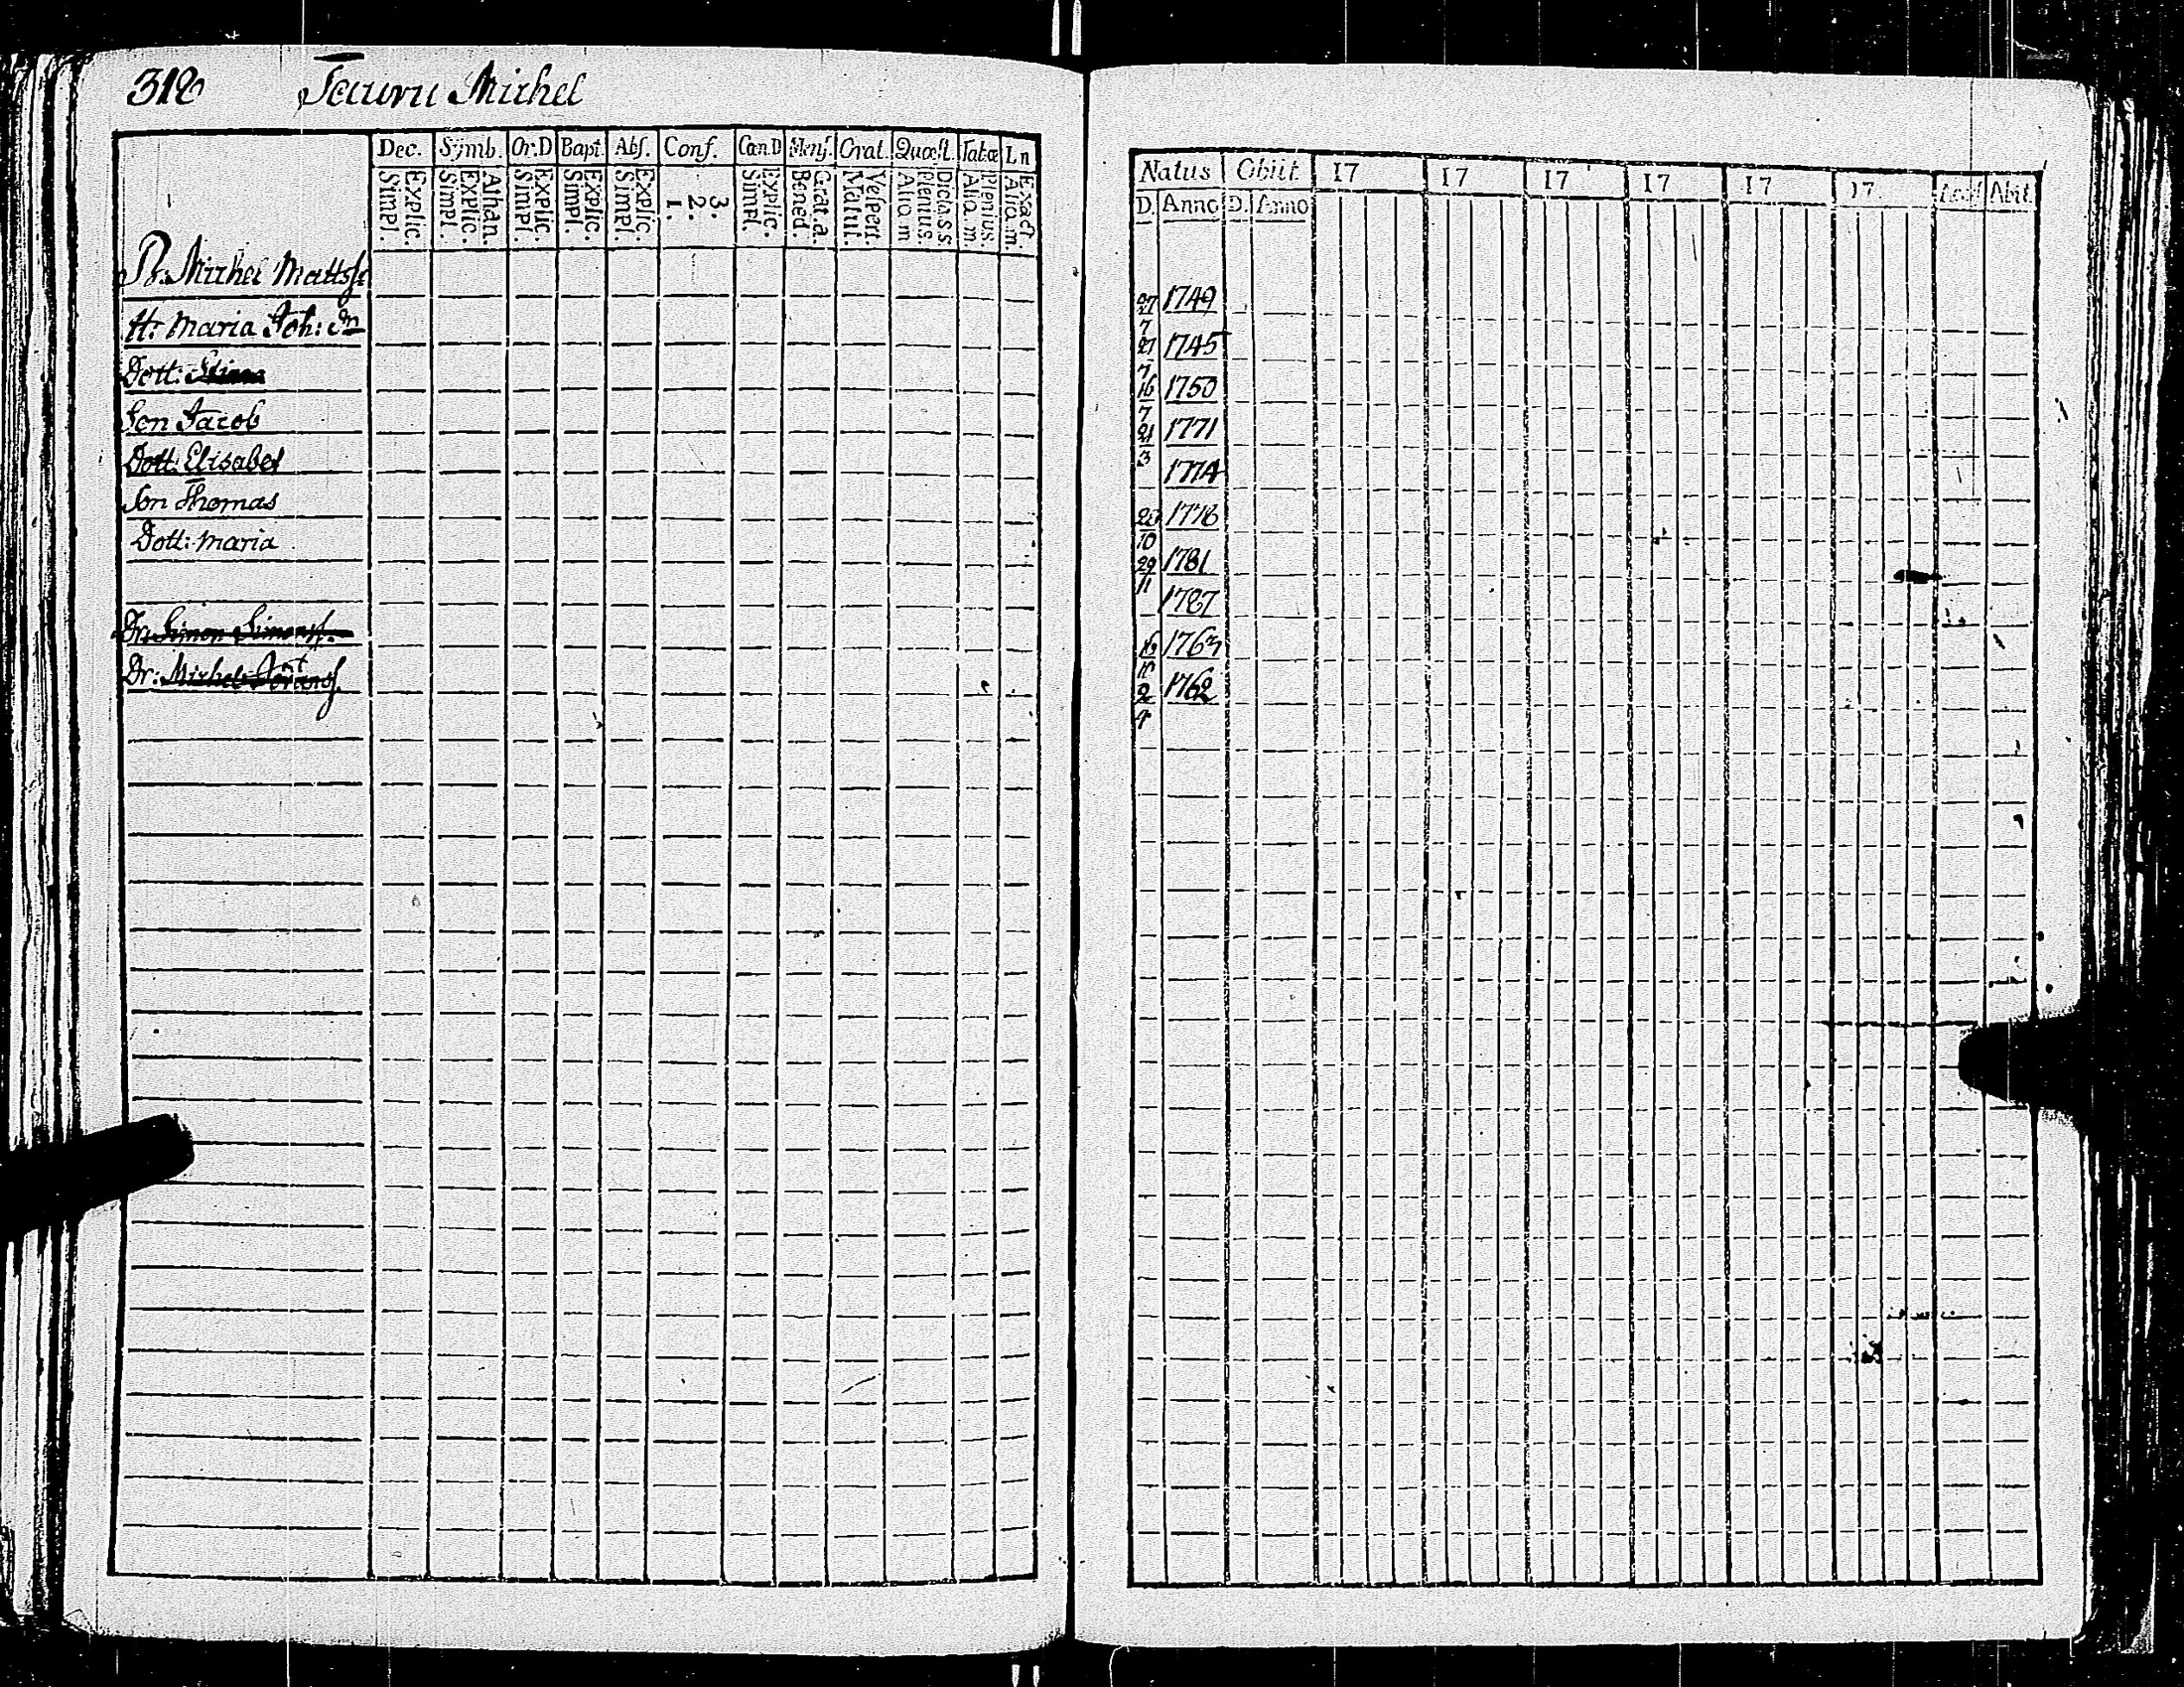 312 Tauru Michel
Dec. Symb. Or.D Bapt. Abs. Conf. Cœn.D Mens. Orat. Quæst. Tabæ Ln
Simpl. Explic. Simpl. Explic. Athan. Simpl. Explic. Simpl. Explic. Simpl. Explic. 1. 2. 3. Simpl. Explic. Bened. Grat.a. Matut. Vespert. Alio m Plenius. Dicta.s.s. Alio. m. Plenius. Alio. m. Exact.
B. Michel Mattss
H: Maria Joh: Dr
Dott: Stina
Son Jacob
Dott: Elisabet
Son Thomas
Dott: Maria
Dr: Simon Simonss.
Dr: Michel
Natus Obiit 17 17 17 17 17 17 Abit
D. Anno D. Anno
27/7 1749
27/7 1745
16/7 1750
21/3 1771
1774
10 1778
29/11 1781
1787
1763
2/4 1762